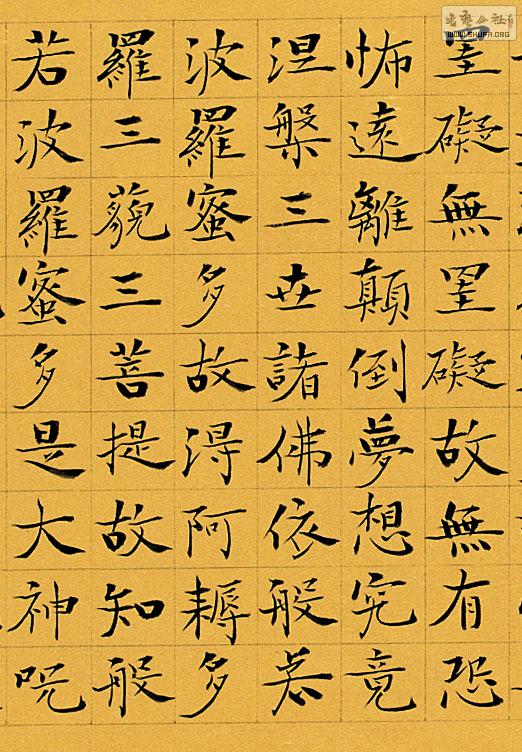 罣礙無罣礙故無有恐
怖遠離顛倒夢想究竟
涅槃三世諸佛依般若
波羅蜜多故得阿耨多
羅三藐三菩提故知般
若波羅蜜多是大神呪
公社
WWW.SHUFA.ORG